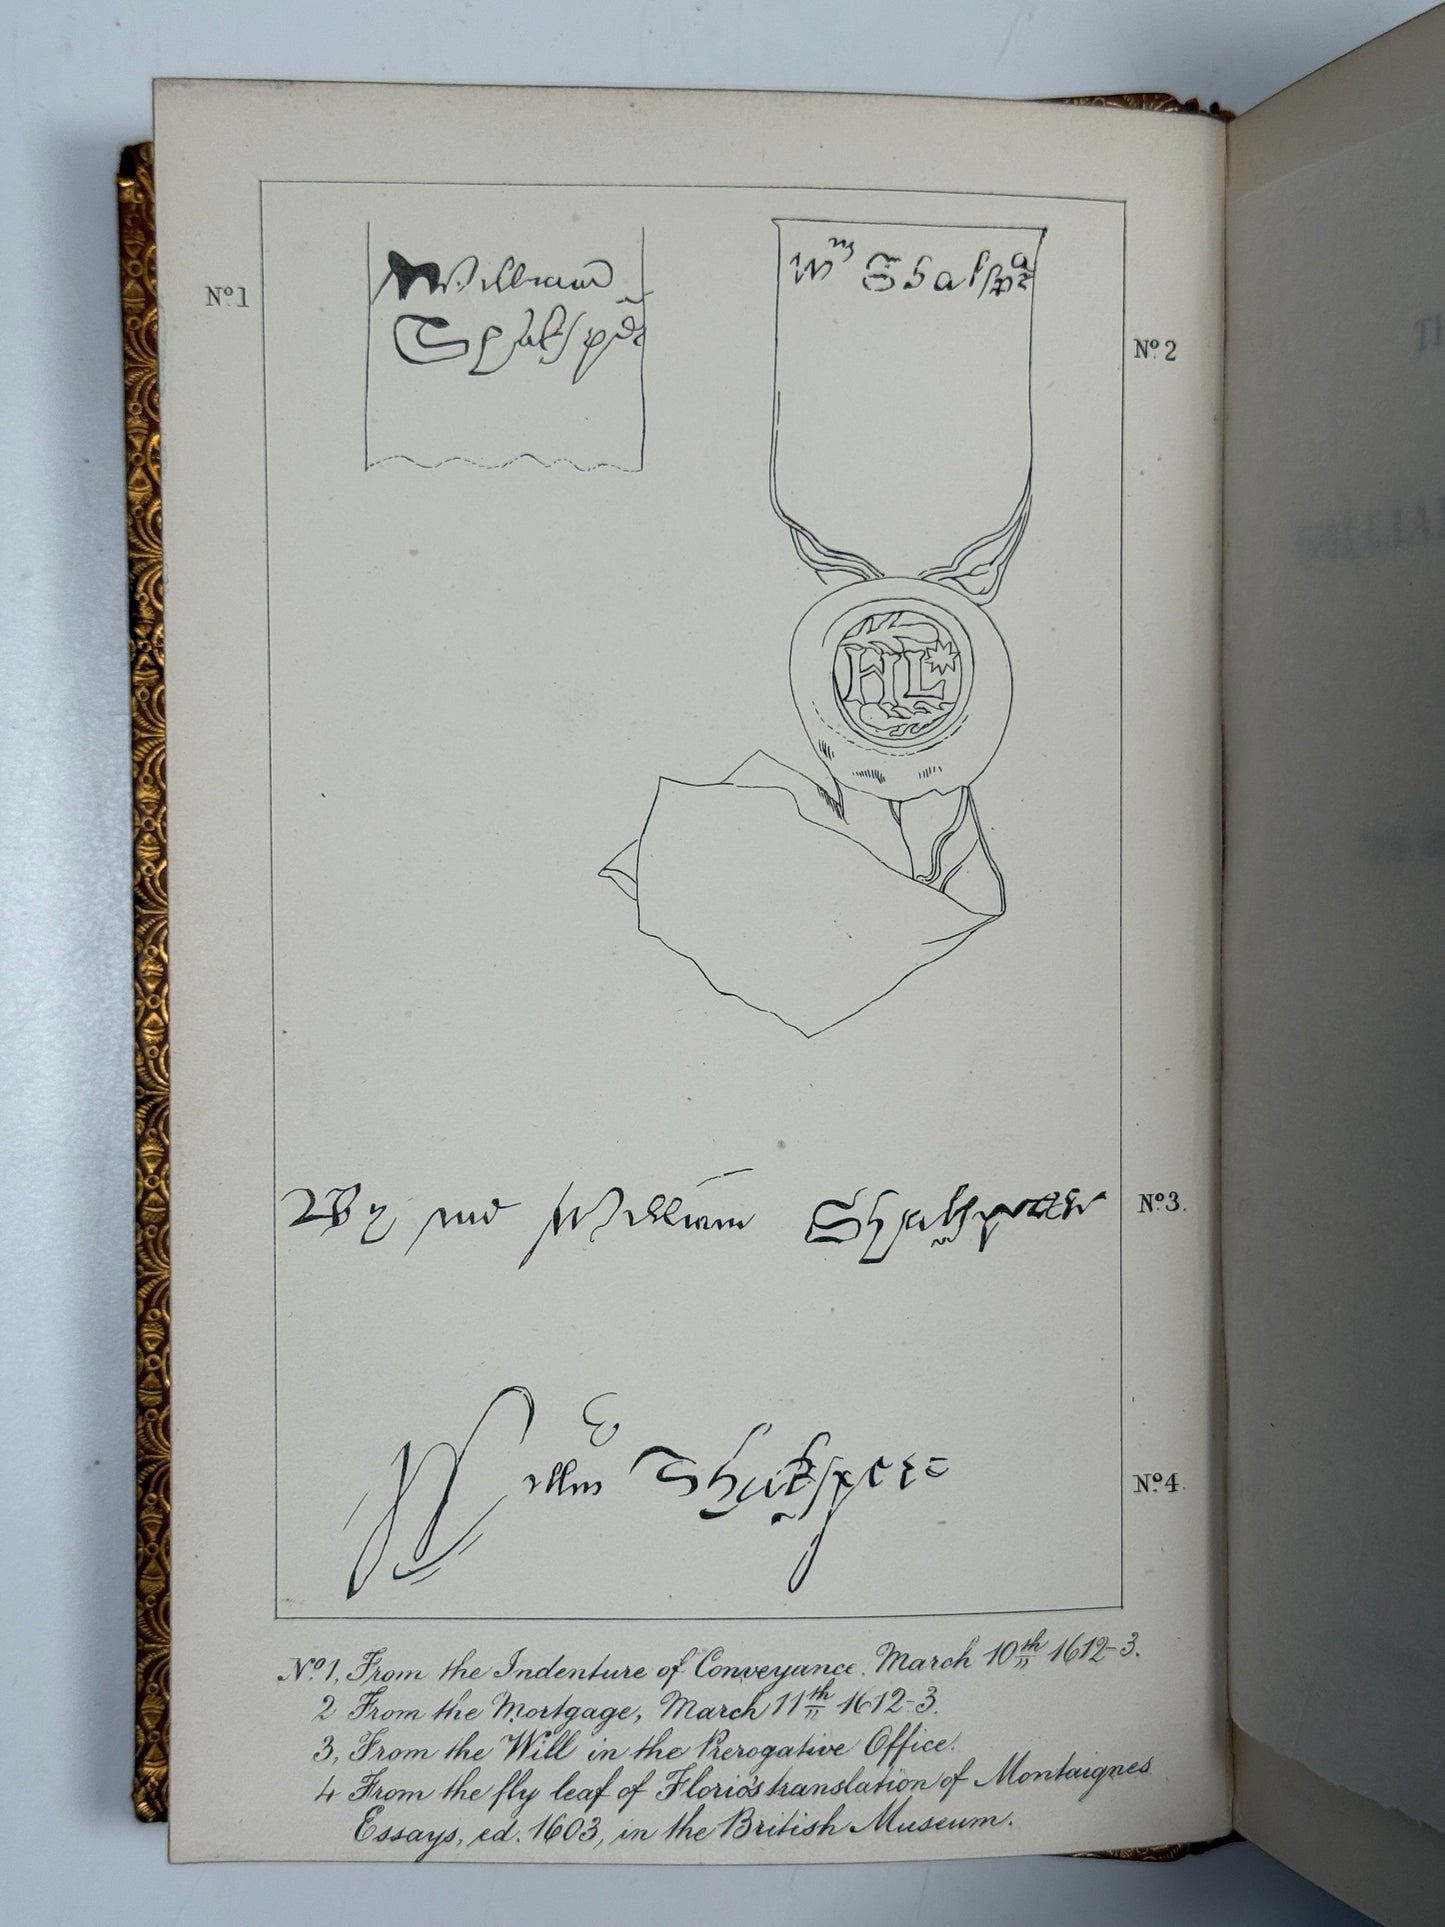 Nº.1
William
Shakspẽ
Wm Shakspea
Nº.2
HL
By me William Shakspeare
Nº.3.
Willm Shakspere
Nº.4.
Nº.1, From the Indenture of Conveyance. March 10th 1612-3.
2 From the Mortgage, March 11th 1612-3.
3, From the Will in the Prerogative Office.
4 From the fly leaf of Florio's translation of Montaignes
Essays, ed. 1603, in the British Museum.